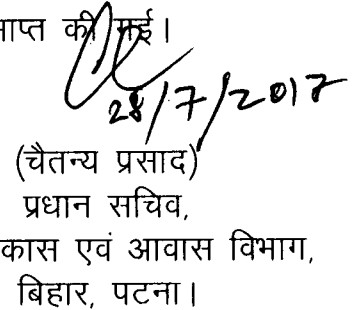 ाप्त की गई।
28/7/2017
(चैतन्य प्रसाद)
प्रधान सचिव,
कास एवं आवास विभाग,
बिहार, पटना।